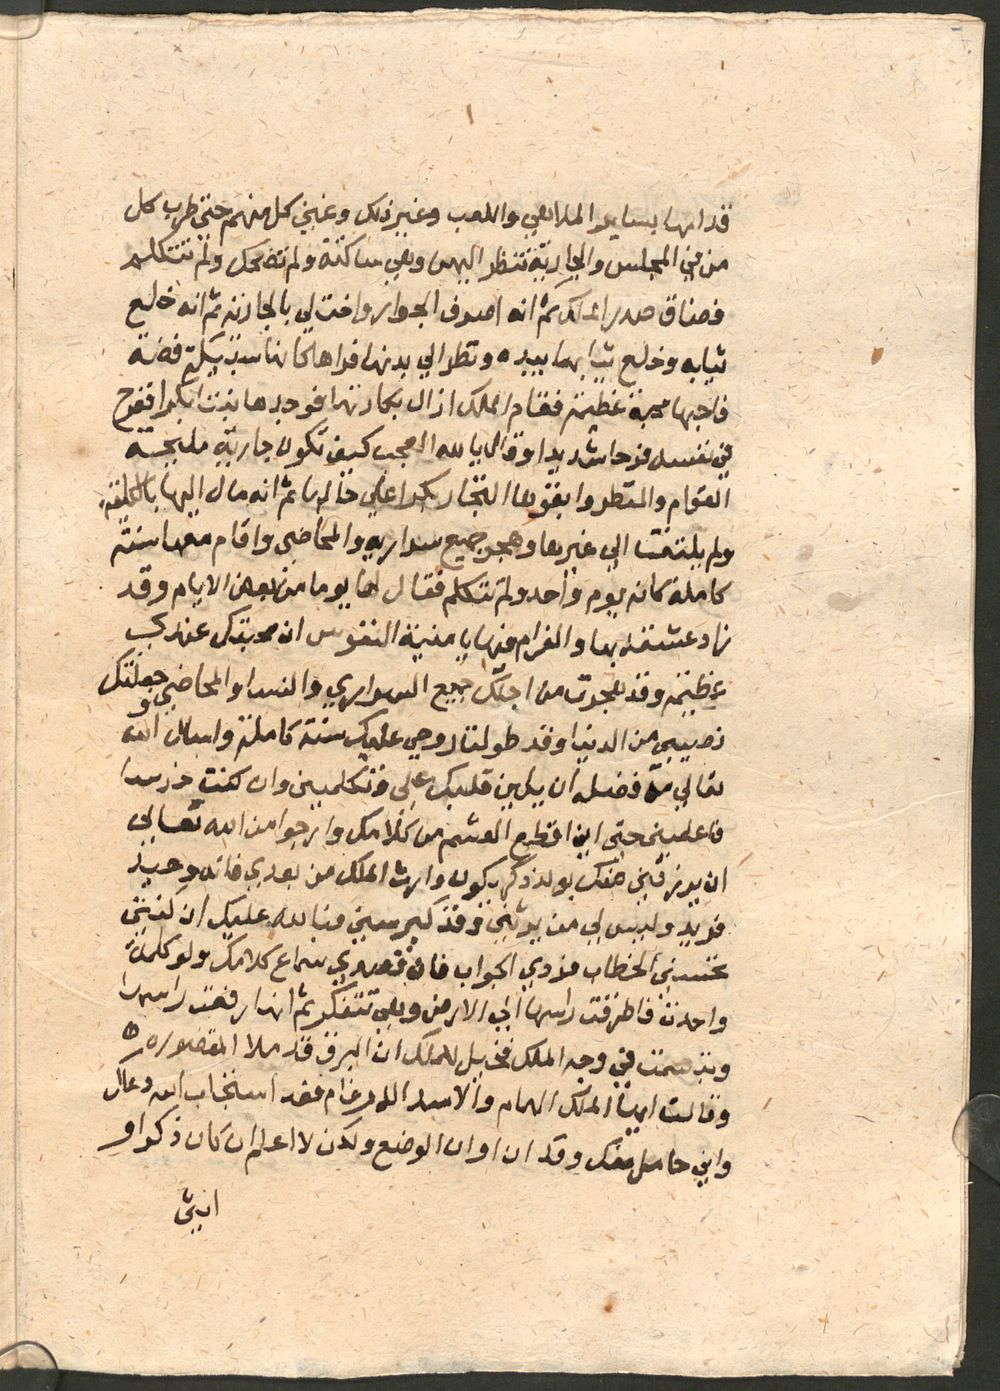 قدامها بساير الملاهي واللعب وغير ذلك وغني كل منهم حتي طرب كل
من في المجلس والجارية تنظر اليهم وهي ساكتة ولم تضحك ولم تتكلم
فضاق صدر الملك ثم انه اصرف الجوار واختلي بالجارية ثم انه خلع
ثيابه وخلع ثيابها بيده ونظر الي بدنها فراها كانها سبيكة فضة
فاحبها محبة عظيمة فقام الملك ازال بكارتها فوجدها بنت بكرا ففرح
في نفسه فرحا شديدا وقال يا لله العجب كيف تكون جارية مليحة
القوام والمنظر وابقوها التجار بكرا علي حالها ثم انه مال اليها بالكلية
ولم يلتفت الي غيرها وهجر جميع سراريه والمحاضي واقام معها سنة
كاملة كانه يوم واحد ولم تتكلم فقال لها يوما من بعض الايام وقد
زاد عشقه بها والغرام فيها يا منية النفوس ان محبتك عندي
عظيمة وقد هجرت من اجلك جميع السراري والنسا والمحاضي وجعلتك
نصيبي من الدنيا وقد طولت روحي عليك سنة كاملة واسال الله
تعالي من فضله ان يلين قلبك علي فتكلميني وان كنت خرسا
فاعلميني حتي اني اقطع العشم من كلامك وارجوا من الله تعالي
ان يرزقني منك بولد ذكر يكون وارث الملك من بعدي فانه وحيد
فريد وليس لي من يرثني وقد كبر سني فبالله عليك ان كنتي
تحسني الخطاب فردي الجواب فان قصدي سماع كلامك ولو كلمة
واحدة فاطرقت راسها الي الارض وهي تتفكر ثم انها رفعت راسها
وتبسمت في وجه الملك فخيل للملك ان البرق قد ملا المقصوره
وقالت ايها الملك الهمام والاسد الدرغام فقد استجاب الله دعاك
واني حامل منك وقد ان اوان الوضع ولكن لا اعلم ان كان ذكرا او
انثي